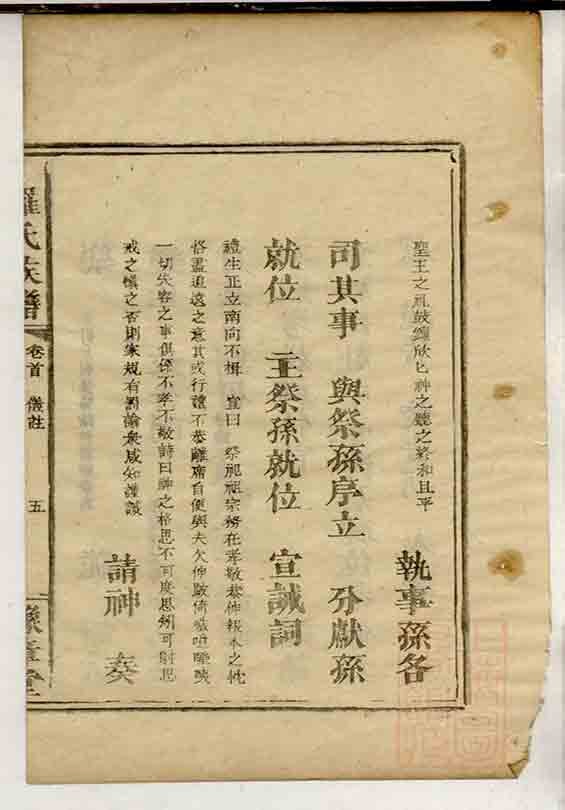 聖王之禮鼓鐘欣欣神之聽之終和且平 執事孫各
司其事 與祭孫序立 分獻孫
就位 主祭孫就位 宣誡詞
禮生正立南向不揖 宣曰 祭祀祖宗務在孝敬恭伸報本之忱
恪盡追遠之意其或行禮不恭離席自便與夫欠伸跛倚
一切失容之事俱係不孝不敬詩曰神之格思不可度思矧可射思
戒之慎之否則家規有罰諭衆咸知謹諏
請神 奏
羅氏族譜 卷首 儀註 五 豫章堂